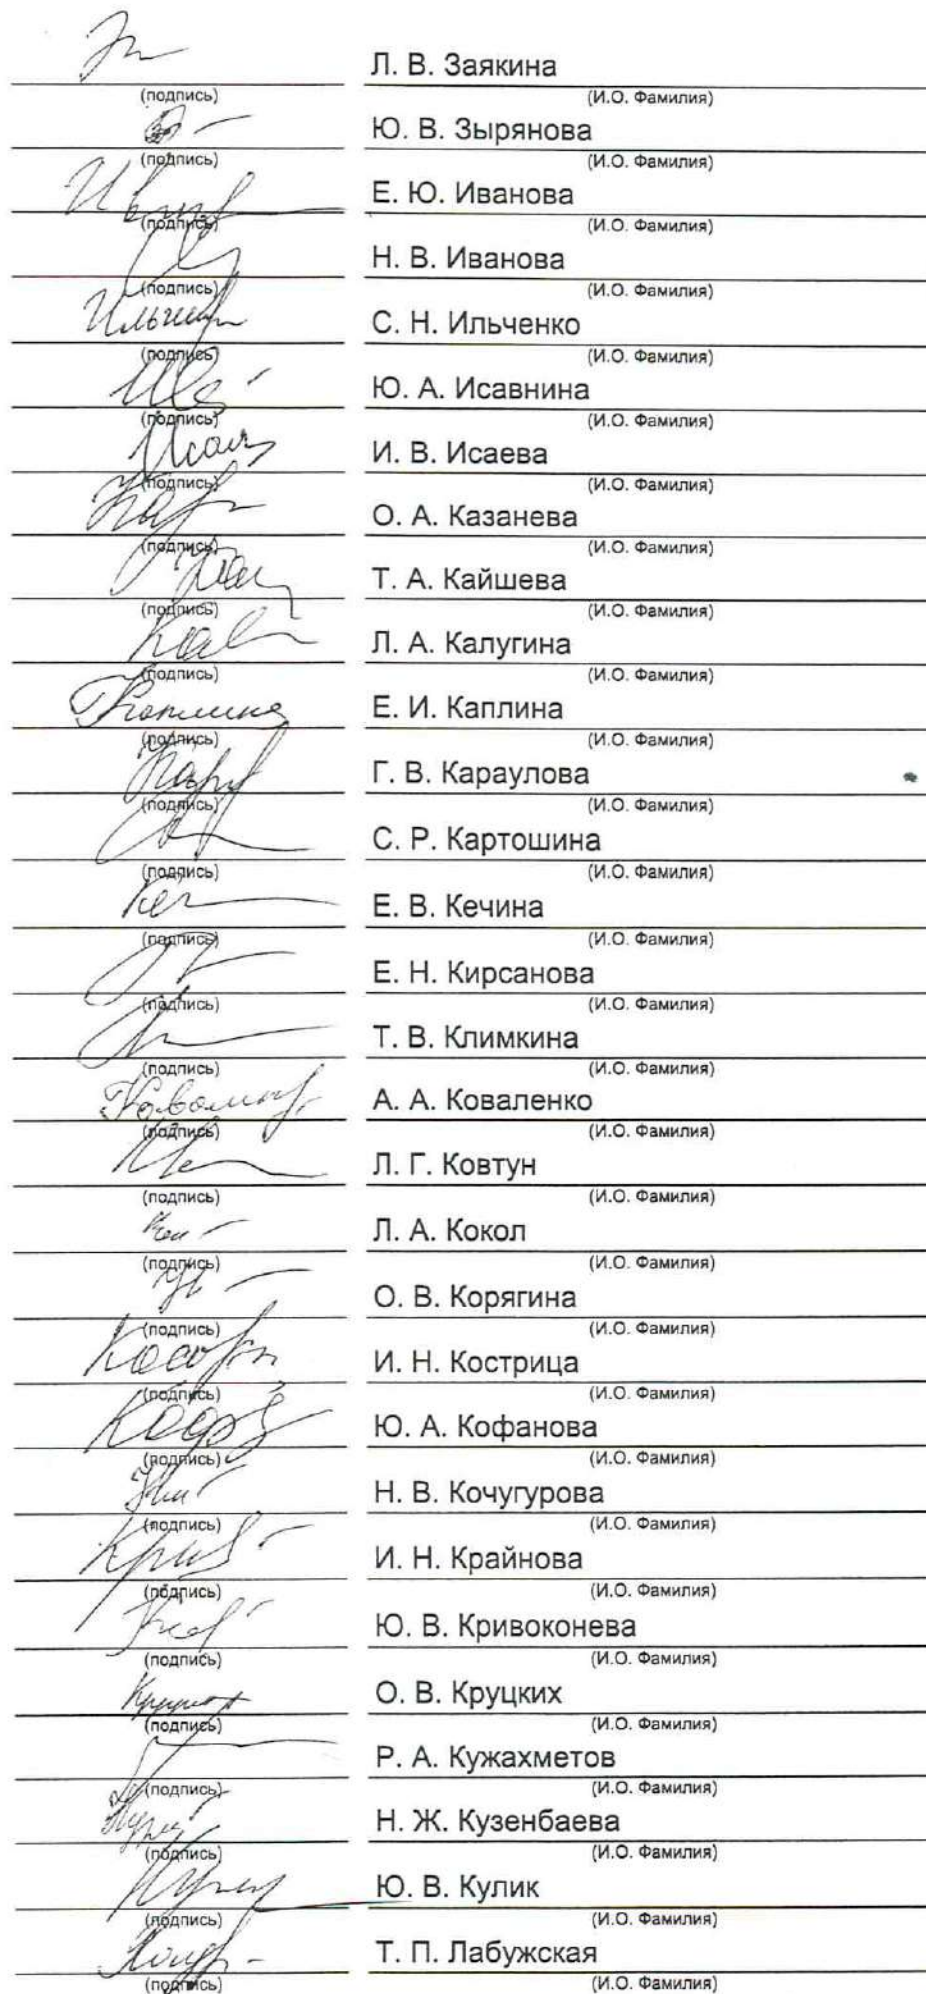 Л. В. Заякина
(подпись) (И.О. Фамилия)
Ю. В. Зырянова
(подпись) (И.О. Фамилия)
Е. Ю. Иванова
(подпись) (И.О. Фамилия)
Н. В. Иванова
(подпись) (И.О. Фамилия)
С. Н. Ильченко
(подпись) (И.О. Фамилия)
Ю. А. Исавнина
(подпись) (И.О. Фамилия)
И. В. Исаева
(подпись) (И.О. Фамилия)
О. А. Казанева
(подпись) (И.О. Фамилия)
Т. А. Кайшева
(подпись) (И.О. Фамилия)
Л. А. Калугина
(подпись) (И.О. Фамилия)
Е. И. Каплина
(подпись) (И.О. Фамилия)
Г. В. Караулова
(подпись) (И.О. Фамилия)
С. Р. Картошина
(подпись) (И.О. Фамилия)
Е. В. Кечина
(подпись) (И.О. Фамилия)
Е. Н. Кирсанова
(подпись) (И.О. Фамилия)
Т. В. Климкина
(подпись) (И.О. Фамилия)
А. А. Коваленко
(подпись) (И.О. Фамилия)
Л. Г. Ковтун
(подпись) (И.О. Фамилия)
Л. А. Кокол
(подпись) (И.О. Фамилия)
О. В. Корягина
(подпись) (И.О. Фамилия)
И. Н. Кострица
(подпись) (И.О. Фамилия)
Ю. А. Кофанова
(подпись) (И.О. Фамилия)
Н. В. Кочугурова
(подпись) (И.О. Фамилия)
И. Н. Крайнова
(подпись) (И.О. Фамилия)
Ю. В. Кривоконева
(подпись) (И.О. Фамилия)
О. В. Круцких
(подпись) (И.О. Фамилия)
Р. А. Кужахметов
(подпись) (И.О. Фамилия)
Н. Ж. Кузенбаева
(подпись) (И.О. Фамилия)
Ю. В. Кулик
(подпись) (И.О. Фамилия)
Т. П. Лабужская
(подпись) (И.О. Фамилия)